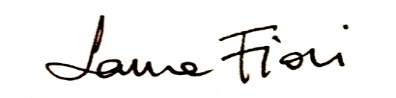 Laura Fiori